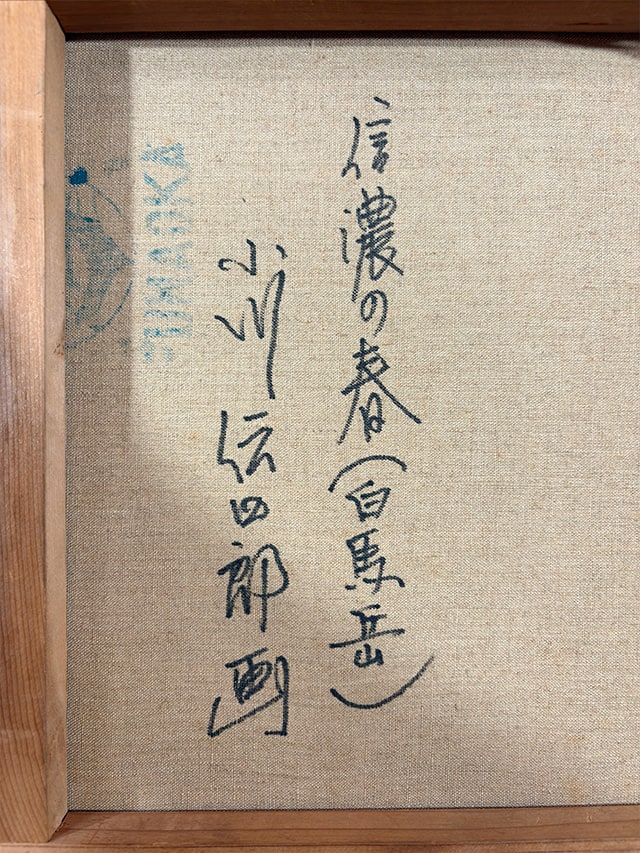 信濃の春(白馬岳)
小川伝四郎画
FUNAOKA